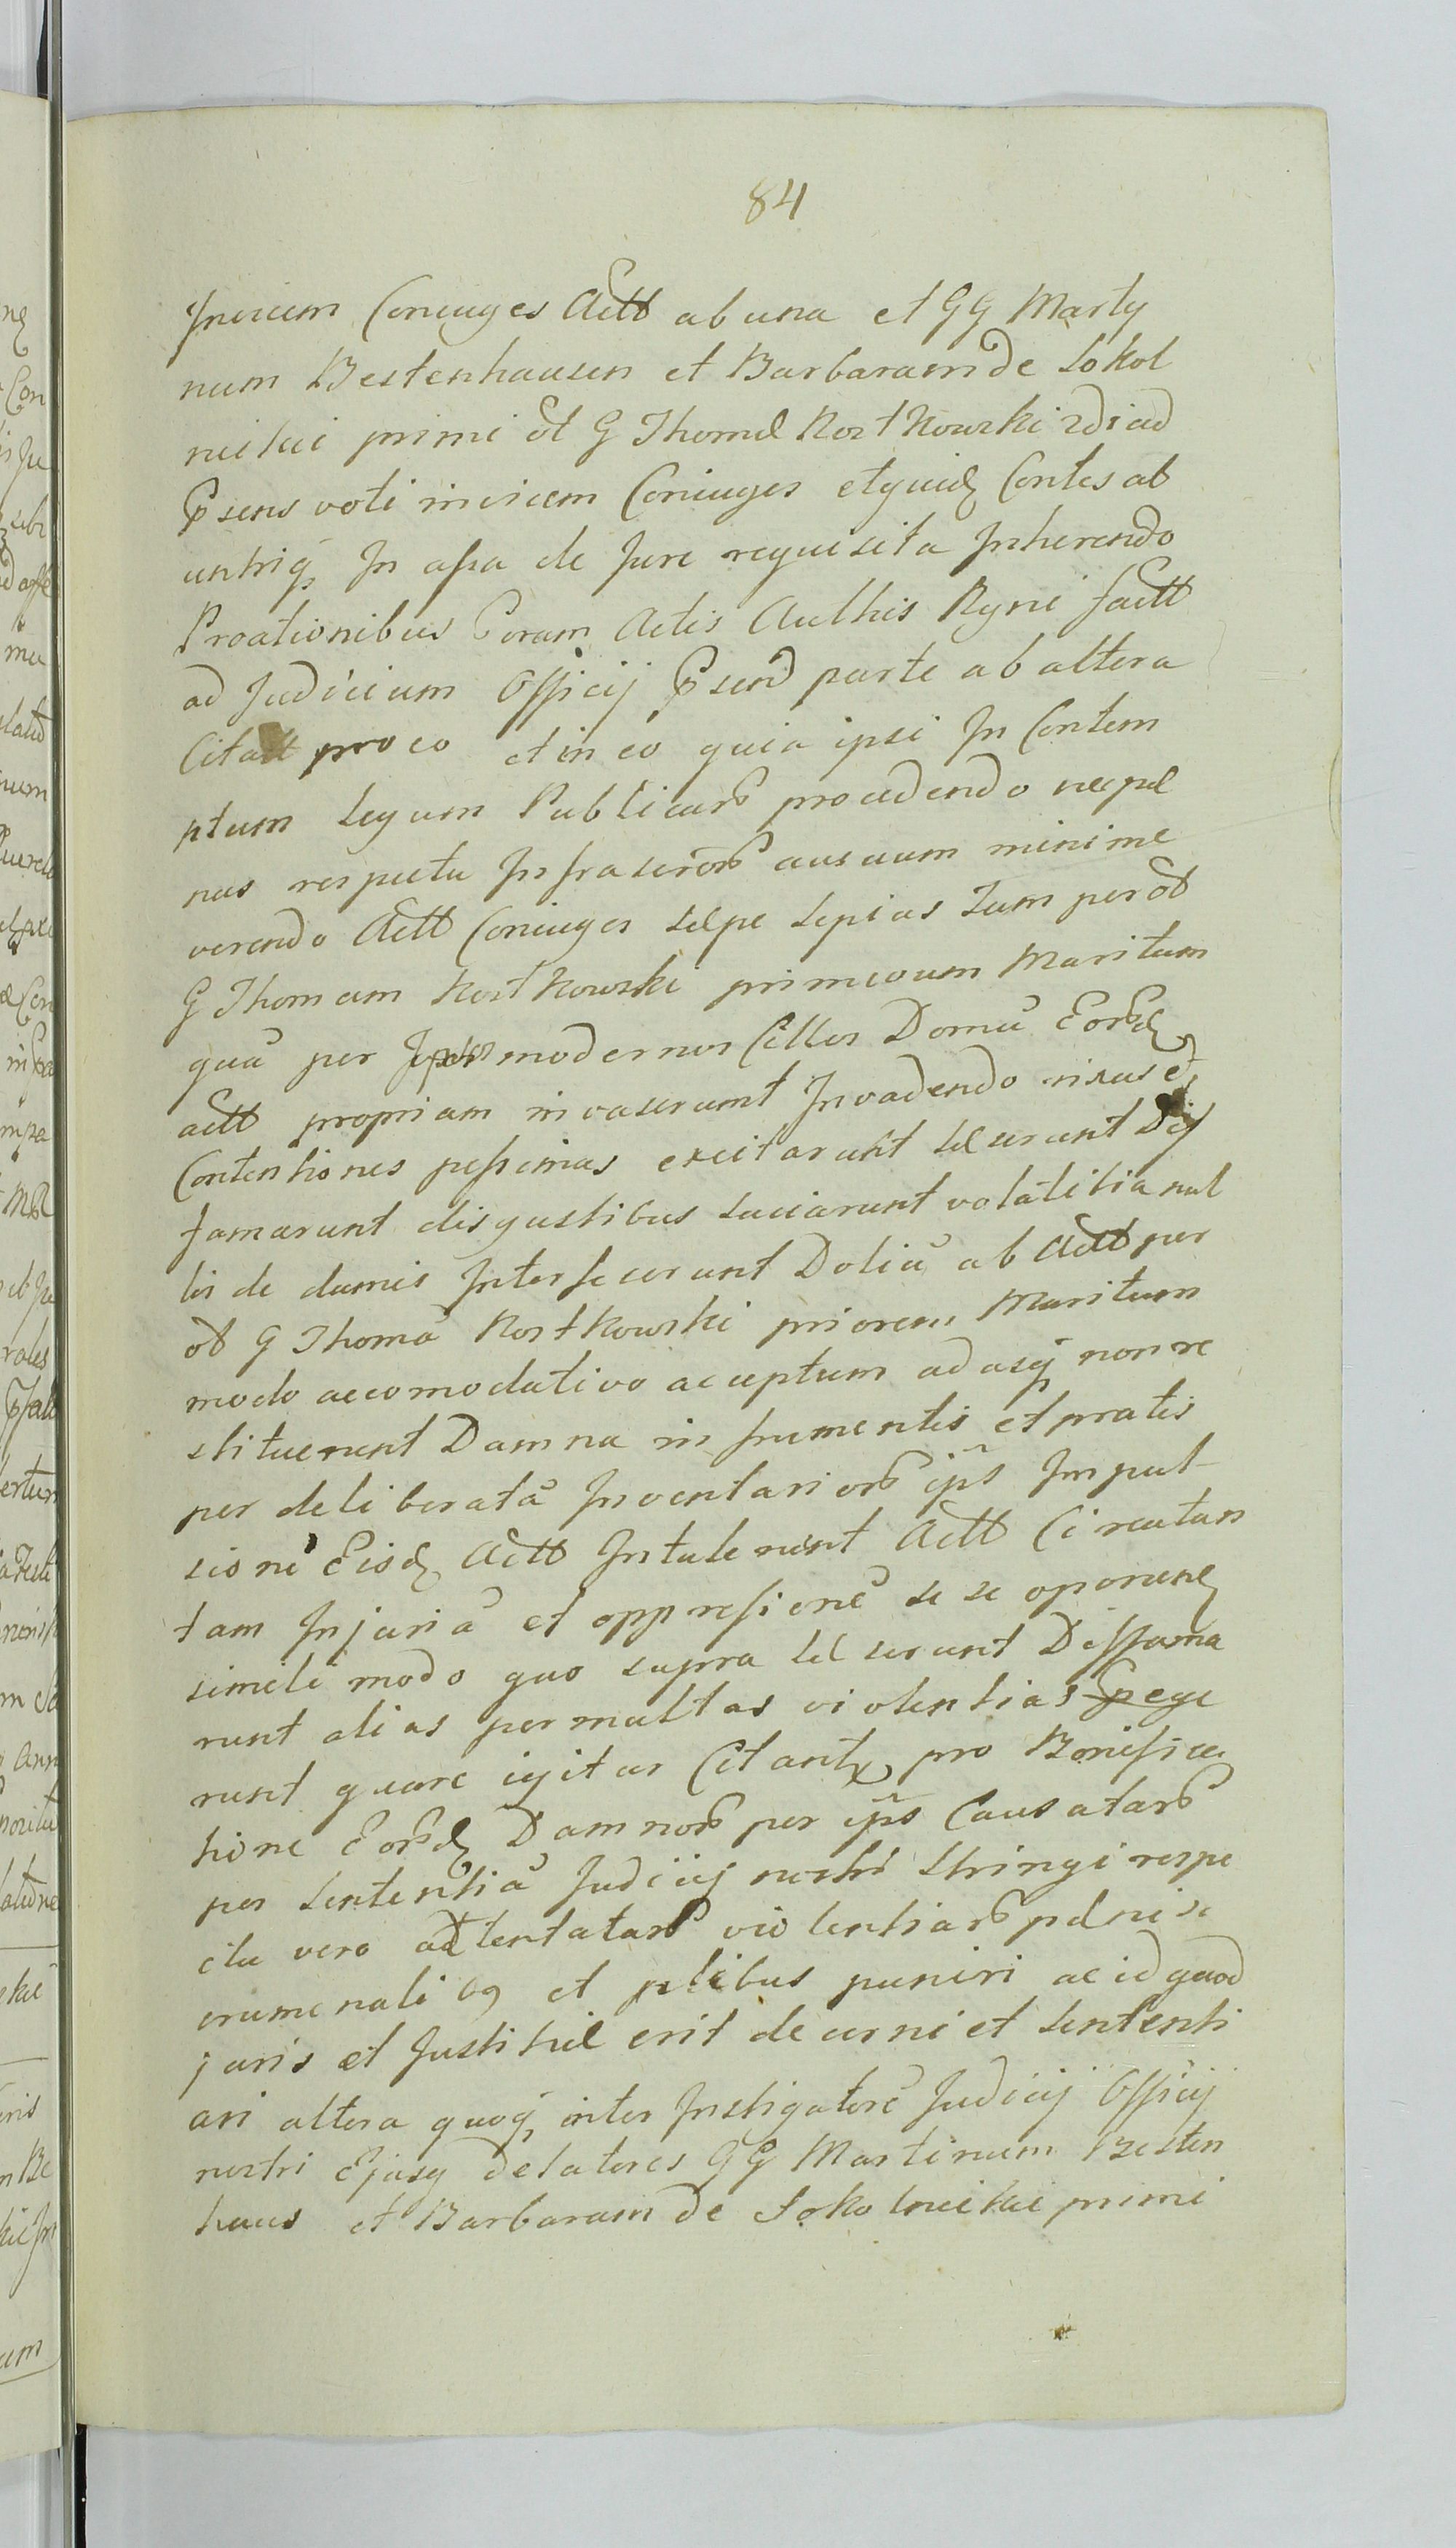 84
Invicem Coniuges Actt ab una et GG Marty
num Bestenhausen et Barbaram de Sokol
nickii primi ol G Thomæ Rostkowski 2di ad
Psens voti invicem Coniuges etquid Contes ab
untriq In assa de Jure requisita Inherendo
Proationibus Coram Actis Authis Ryni factt
ad Judicium Officij Psend parte ab altera
Citatt pro eo et in eo quia ipsi In Contem
ptum Legum Publicarb procedendo necpæ
nas respectu Infrascrorb ausuum minime
verendo Actt Coniuges sæpe sepius Tum per ol
G Thomam Rostkowski primevum Maritum
qua per modernos Cittos Domu Eorbd
actt propriam invaserunt Invadendo rixas et
Contentiones pessimas excitarunt Læserunt Dif
famarunt disgustibus suciarunt volatilia nul
lis de damis Interfecerunt Doliu ab Actt per
ol G Thoma Rostkowski priorem Maritum
modo accomodativo acceptum adasq non re
stituerunt Damna in frumentis et pratis
per deliberata Inventariorb ips Impul
sione Eisd Actt Intulerunt Actt Circutan
tam Injuria et oppresione se se oponend
simili modo quo supra Læserunt Diffama
runt alias permultas violentias Pege
runt quare igitur Citant pro Bonifica
tione Eorbd Damnorb per ips Causatarb
per Sententia Judicij nostri Stringi respe
ctu vero attentatarb violentiarb pænis
crumenalibq et plibus puniri ac id quod
juris et Justitiæ erit decerni et Sententi
ari altera quoq inter Instigatore Judicij Officij
nostri Ejusq delatores GG Martinum Besten
haus et Barbaram de Sokolnickie primi